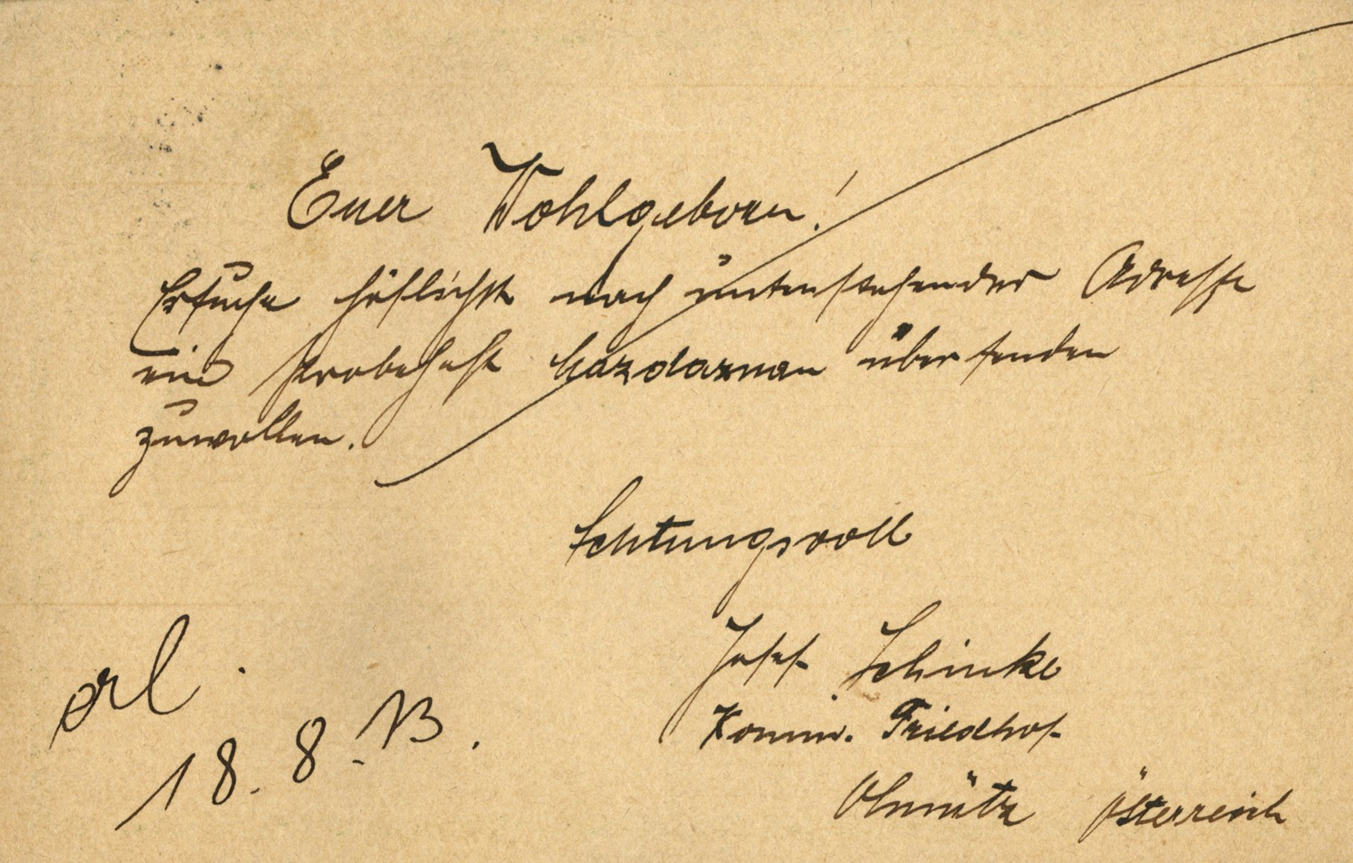 Euer Wohlgeboren!
Ersuche höflichst nach untenstehender Adresse
ein Probeheft Mazdaznan übersenden
zuwollen.
Achtungsvoll
Josef Schinke
Komm. Friedhof
Olmütz Österreich
erl.
18. 8. 13.